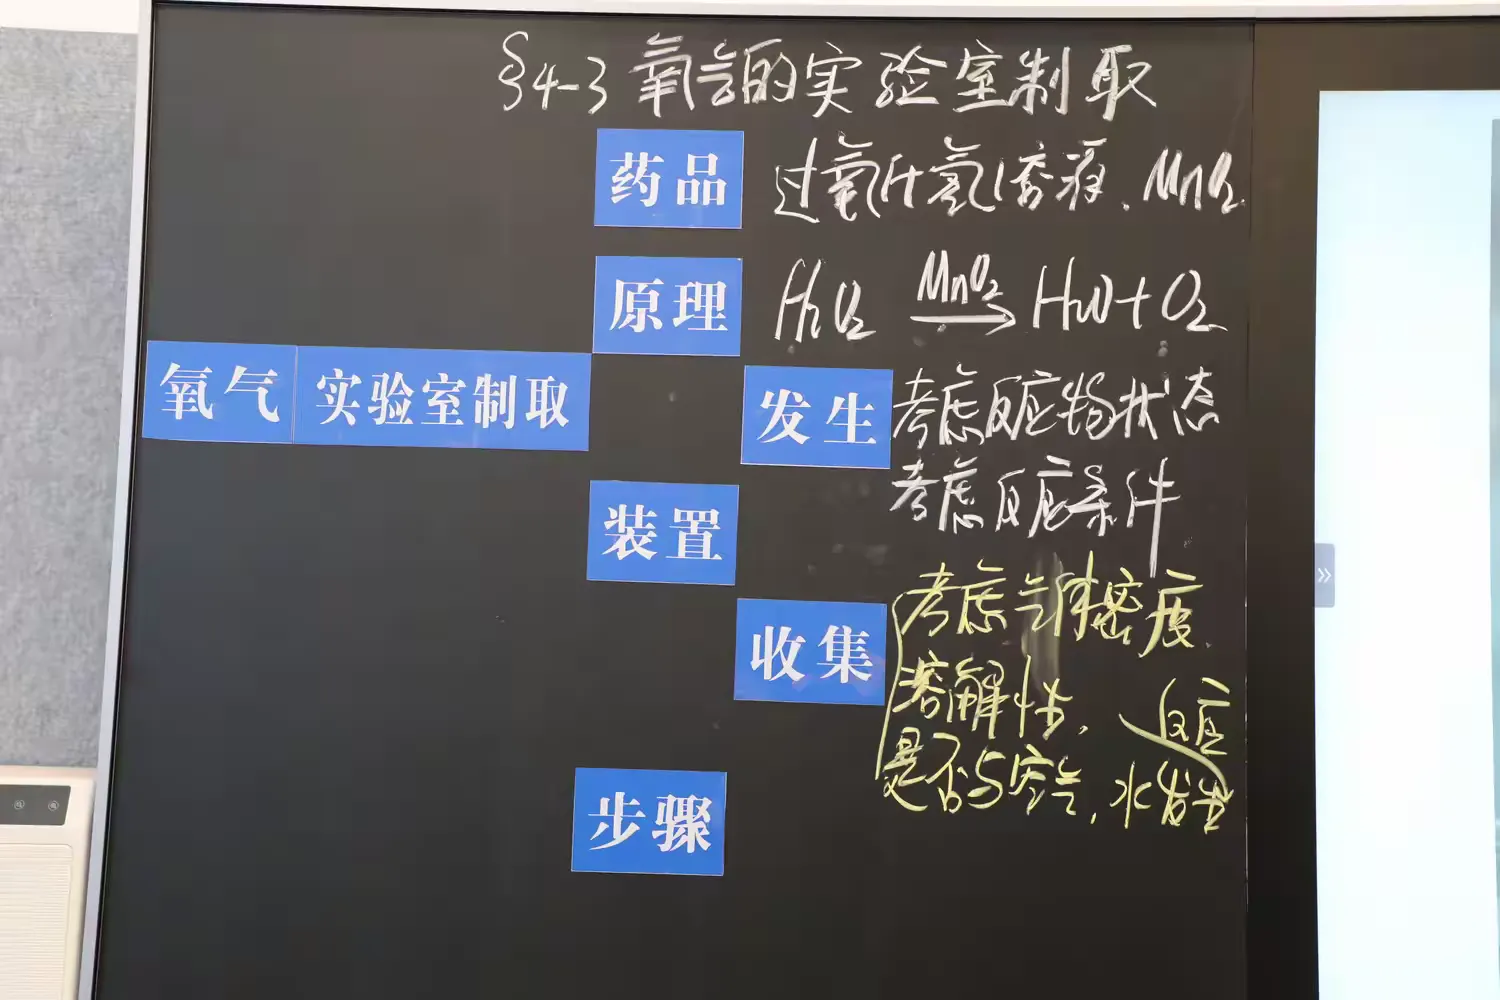 §4-3 氧气的实验室制取
药品 过氧化氢溶液、MnO2
原理 H2O2 MnO2→ H2O+O2
氧气 实验室制取
发生 考虑反应物状态
考虑反应条件
装置
收集 考虑气体密度
溶解性,
是否与空气,水发生反应
步骤